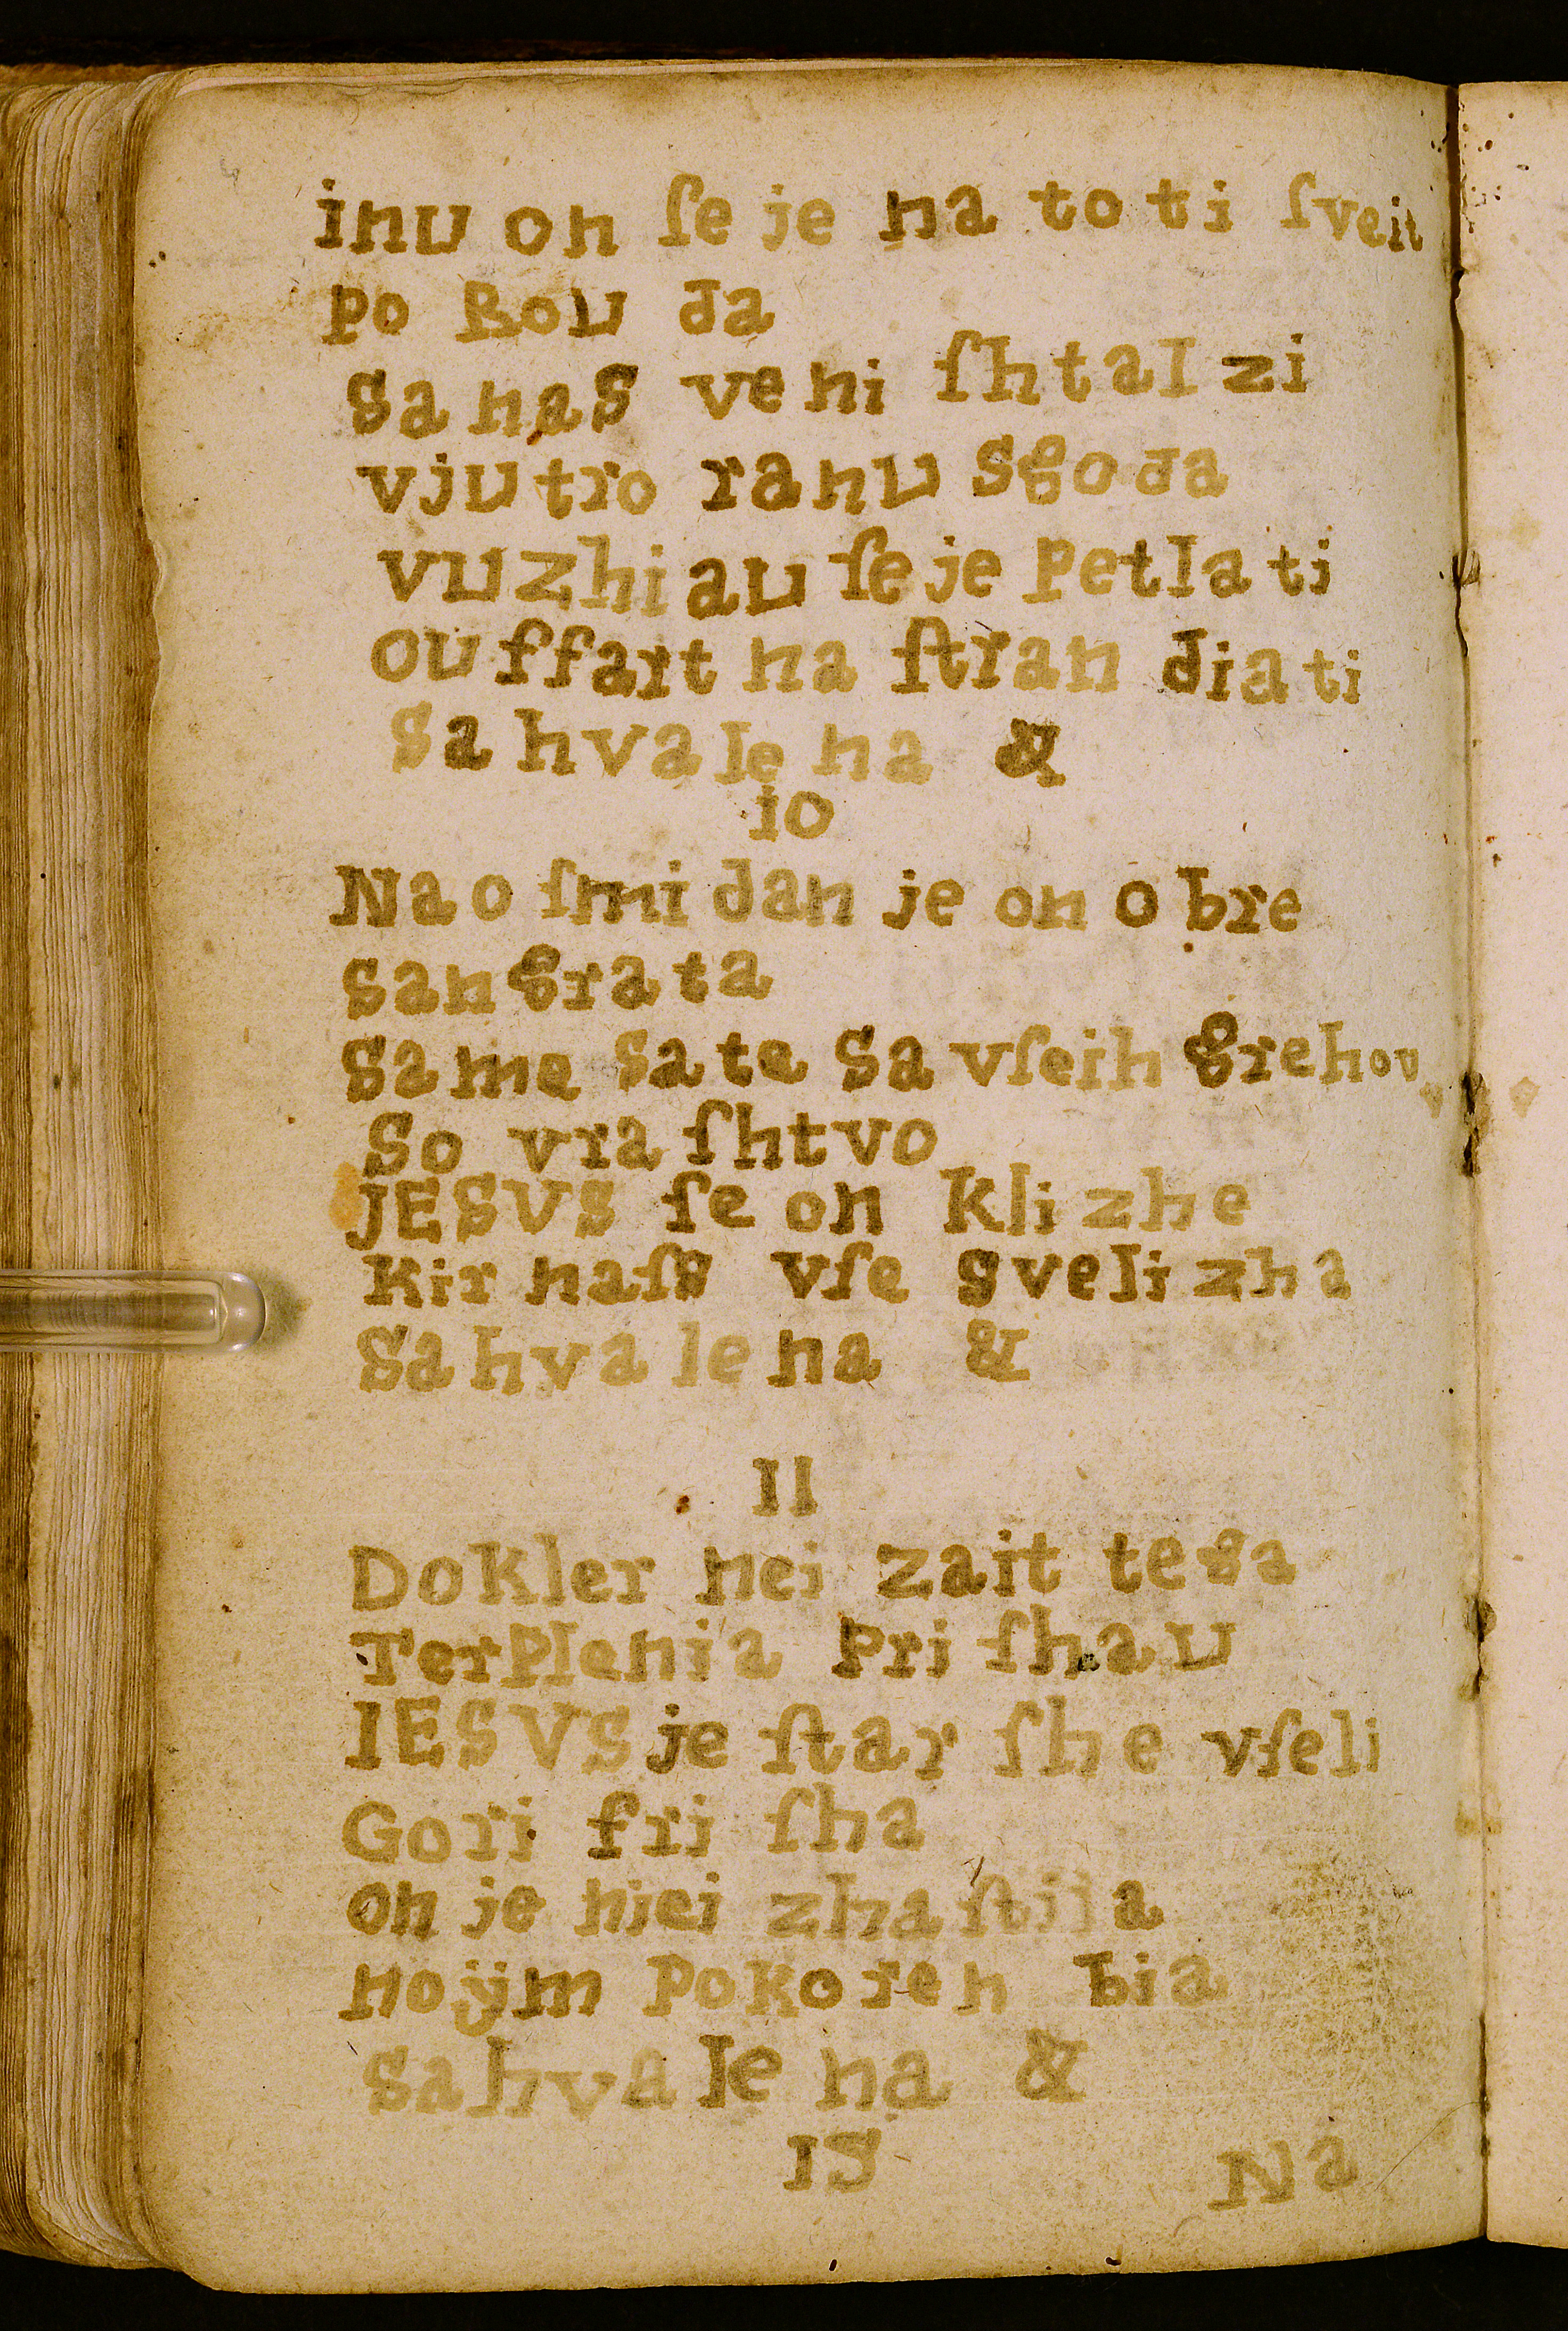 inu on ſe je na to ti ſveit
po Rou da
Sa nas ve ni ſhtal zi
vju tro ra nu Sgo da
vu zhi au ſe je petla ti
ou ffart na ſtran dia ti
Sa hva le na &
io
Na o ſmi dan je on o bre
san gra ta
Sa me Sa te Sa vſeih grehov
So vra ſhtvo
JESVS ſe on Kli zhe
Kir naſs vſe s veli zha
Sa hva le na &
II
DoKler nei zait tesa
Terplenia Pri ſhau
IESVS je ſtar ſhe vſeli
Gori fri ſha
on je niei zha ſtila
noÿm PoKoren bia
Sahvale na &
IS
Na